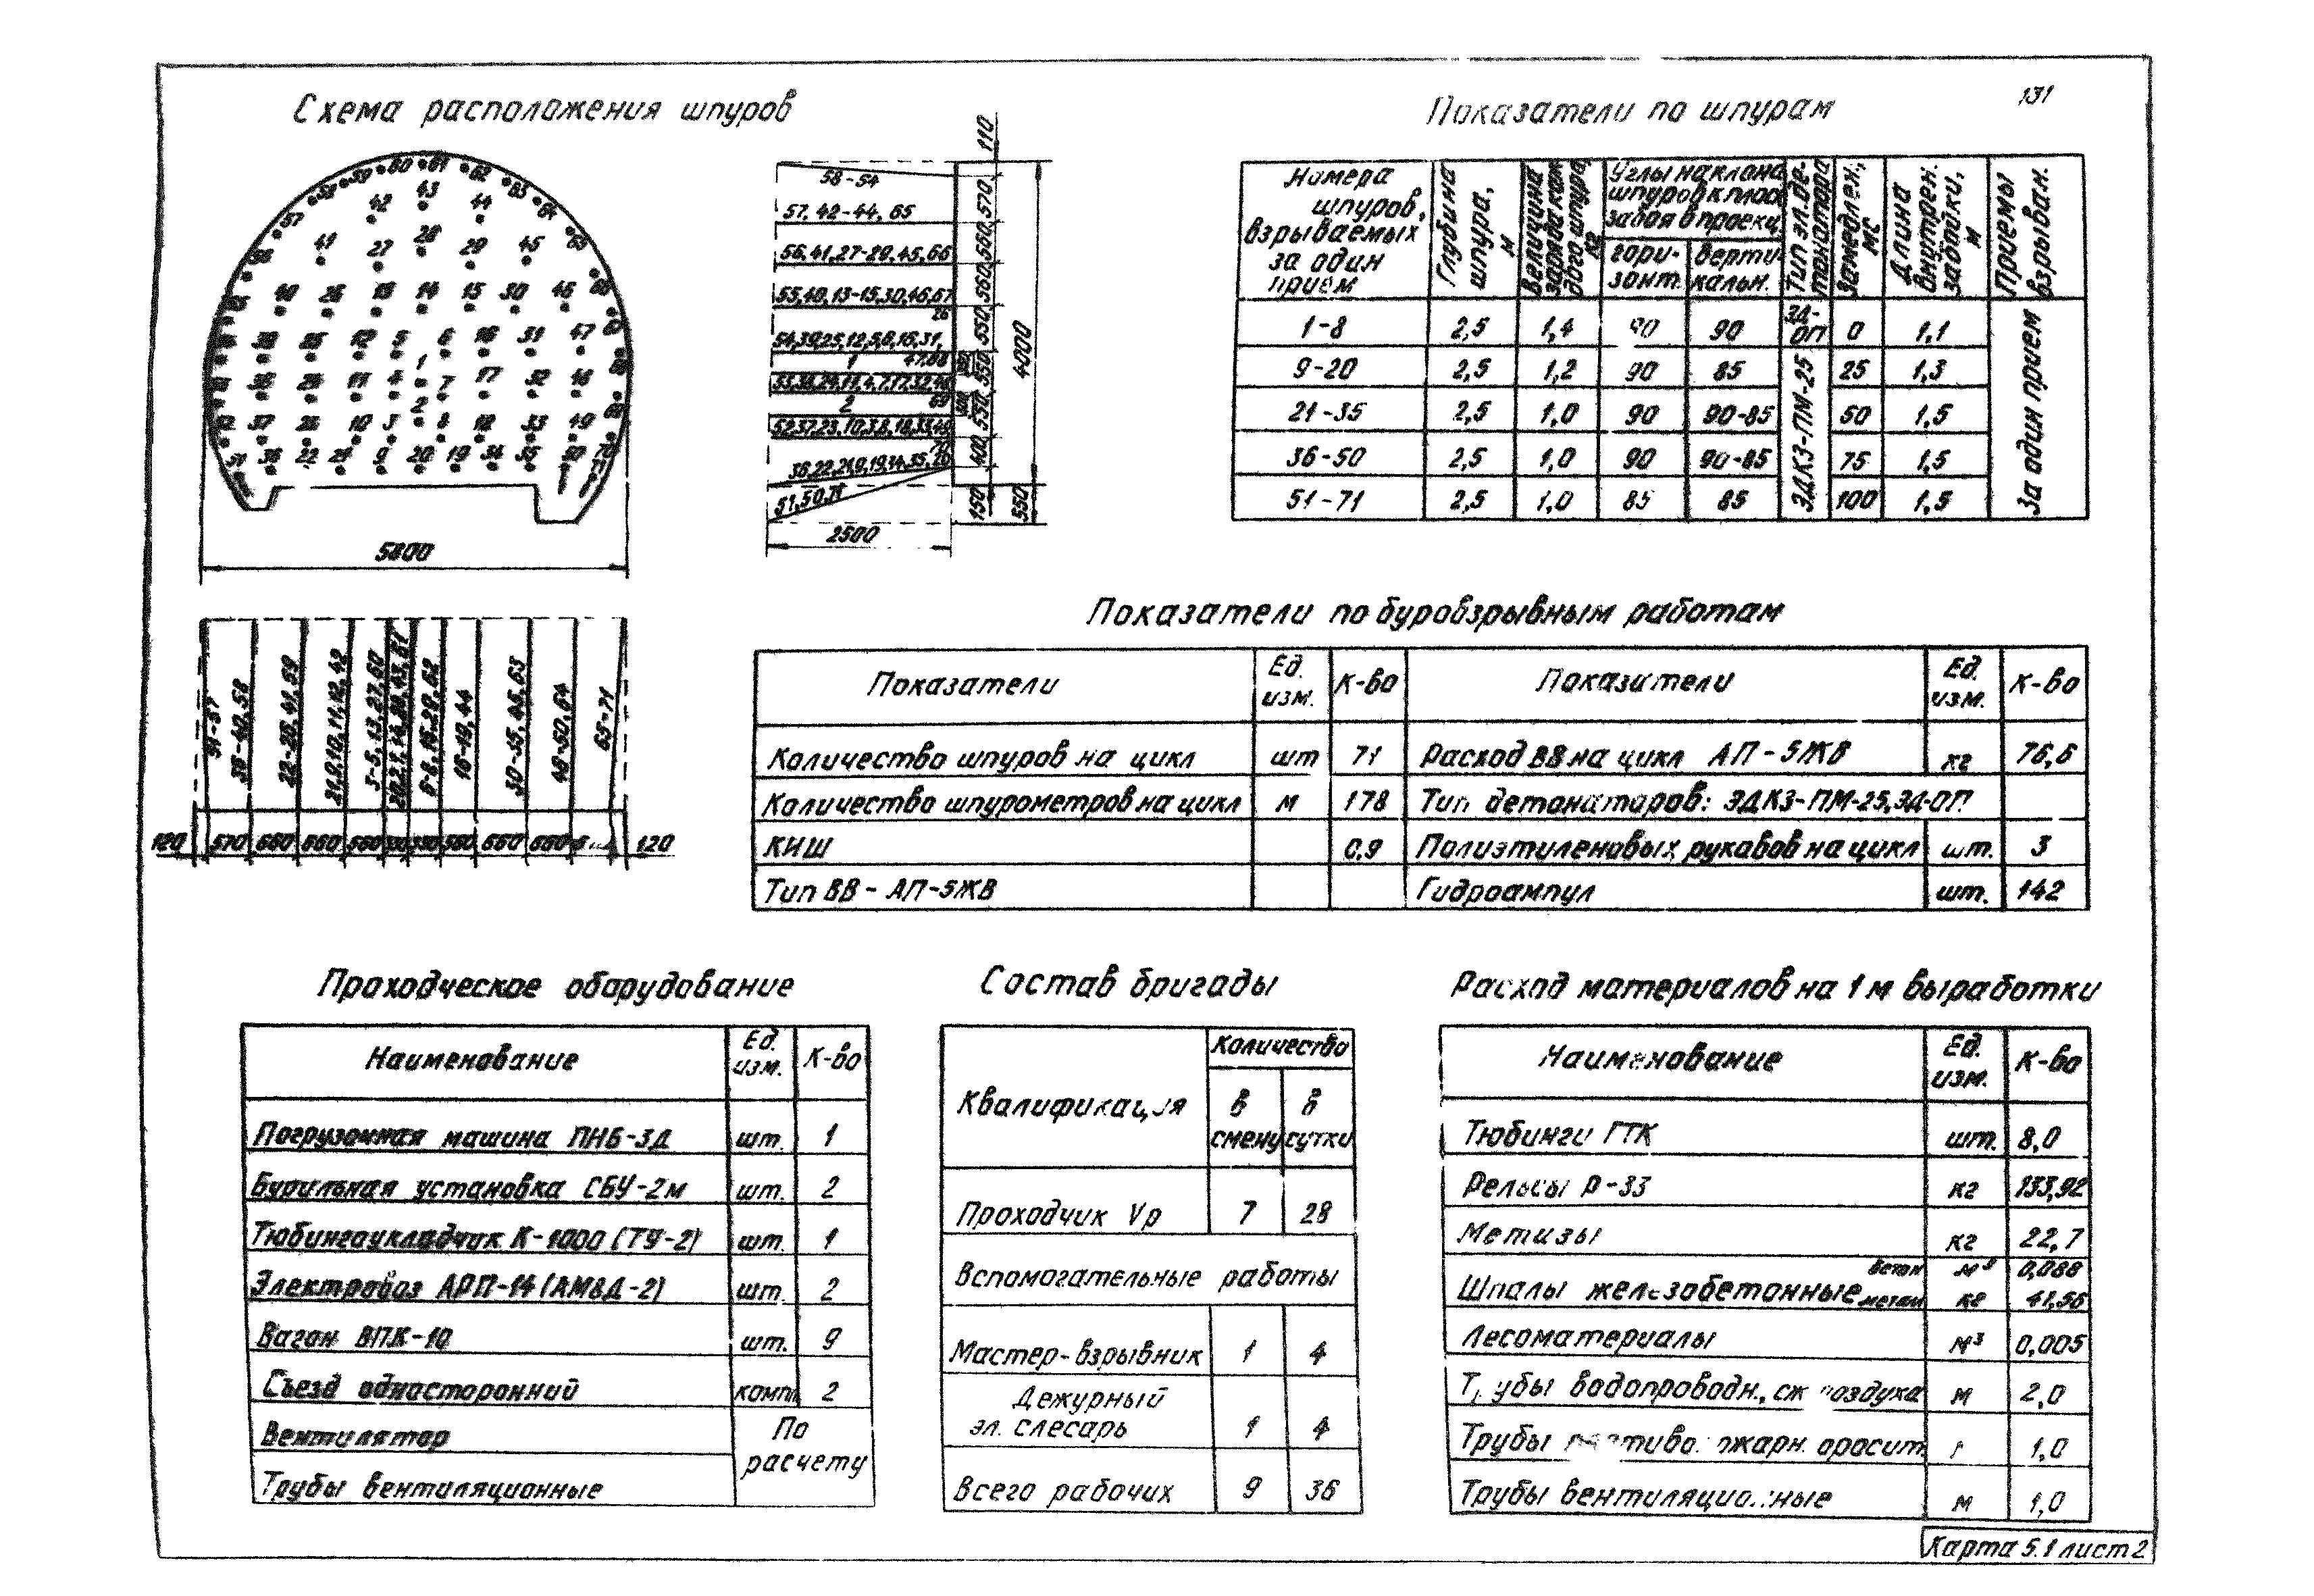 131
Схема расположения шпуров
60 61 62
59 63
58 42 43 44 64
57
41 27 28 29 45
40 26 13 14 15 30 46
5 6 16 31 47
1
11 4 7 17 32
2
37 10 3 8 18 33 49
36 22 21 9 20 19 34 35
5800
58-64
57, 42-44, 65
56,41,27-29,45,66
55,40,13-15,30,46,67
26
54,39,25,12,5,6,16,31,
1 47,68
2 69
52,37,23,10,3,8,18,33,49
51,50,71
2500
110
570
560
560
550
550
550
400
150
4000
550
51-57
36-40,58
22-26,41,59
21,9,10,11,12,42
3-5,13,27,60
20,2,1,14,28,43,61
6-8,15,29,62
16-19,44
30-35,45,63
46-50,64
65-71
120 570 660 660 560 330 330 560 660 660 120
Показатели по шпурам
Номера шпуров, взрываемых за один прием
Глубина шпура, м
Величина заряда каждого шпура, кг
Углы наклона шпуров к плос. забоя в проекц.
гори-зонт. верти-кальн.
Тип эл. де-тонатора
Замедлен., мс
Длина внутрен. забойки, м
Приемы взрыван.
1-8 2,5 1,4 90 90 ЭД-ОП 0 1,1
9-20 2,5 1,2 90 85 25 1,3
21-35 2,5 1,0 90 90-85 50 1,5
36-50 2,5 1,0 90 90-85 75 1,5
51-71 2,5 1,0 85 85 100 1,5
ЭДКЗ-ПМ-25
За один прием
Показатели по буровзрывным работам
Показатели Ед. изм. К-во Показатели Ед. изм. К-во
Количество шпуров на цикл шт 71 Расход ВВ на цикл АП-5ЖВ кг 76,6
Количество шпурометров на цикл м 178 Тип детонаторов: ЭДКЗ-ПМ-25, ЭД-ОП
КИШ 0,9 Полиэтиленовых рукавов на цикл шт. 3
Тип ВВ - АП-5ЖВ Гидроампул шт. 142
Проходческое оборудование
Наименование Ед. изм. К-во
Погрузочная машина ПНБ-3Д шт. 1
Бурильная установка СБУ-2м шт. 2
Тюбингоукладчик К-1000 (ТУ-2) шт. 1
Электровоз АРП-14 (АМ8Д-2) шт. 2
Вагон ВПК-10 шт. 9
Съезд односторонний компл 2
Вентилятор По
расчету
Трубы вентиляционные
Состав бригады
Квалификация Количество
в смену в сутки
Проходчик Vр 7 28
Вспомогательные работы
Мастер-взрывник 1 4
Дежурный
эл. слесарь 1 4
Всего рабочих 9 36
Расход материалов на 1 м выработки
Наименование Ед. изм. К-во
Тюбинги ГТК шт. 8,0
Рельсы Р-33 кг 133,92
Метизы кг 22,7
Шпалы железобетонные бетон м³ 0,088
металл кг 41,56
Лесоматериалы м³ 0,005
Трубы водопроводн., сж. воздуха м 2,0
Трубы противопожарн. оросит. 1,0
Трубы вентиляционные м 1,0
Карта 5.1 лист 2